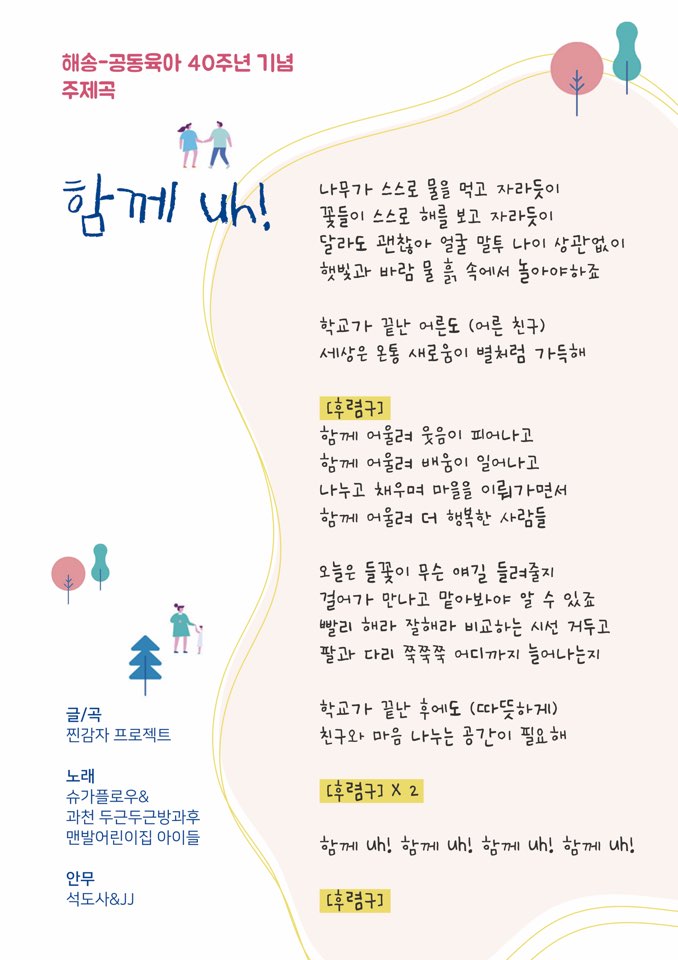 해송-공동육아 40주년 기념
주제곡
함께 uh!
나무가 스스로 물을 먹고 자라듯이
꽃들이 스스로 해를 보고 자라듯이
달라도 괜찮아 얼굴 말투 나이 상관없이
햇빛과 바람 물 흙 속에서 놀아야하죠
학교가 끝난 어른도 (어른 친구)
세상은 온통 새로움이 별처럼 가득해
[후렴구]
함께 어울려 웃음이 피어나고
함께 어울려 배움이 일어나고
나누고 채우며 마을을 이뤄가면서
함께 어울려 더 행복한 사람들
오늘은 들꽃이 무슨 얘길 들려줄지
걸어가 만나고 맡아봐야 알 수 있죠
빨리 해라 잘해라 비교하는 시선 거두고
팔과 다리 쭉쭉쭉 어디까지 늘어나는지
학교가 끝난 후에도 (따뜻하게)
친구와 마음 나누는 공간이 필요해
[후렴구] X 2
함께 uh! 함께 uh! 함께 uh! 함께 uh!
[후렴구]
글/곡
찐감자 프로젝트
노래
슈가플로우&
과천 두근두근방과후
맨발어린이집 아이들
안무
석도사&JJ